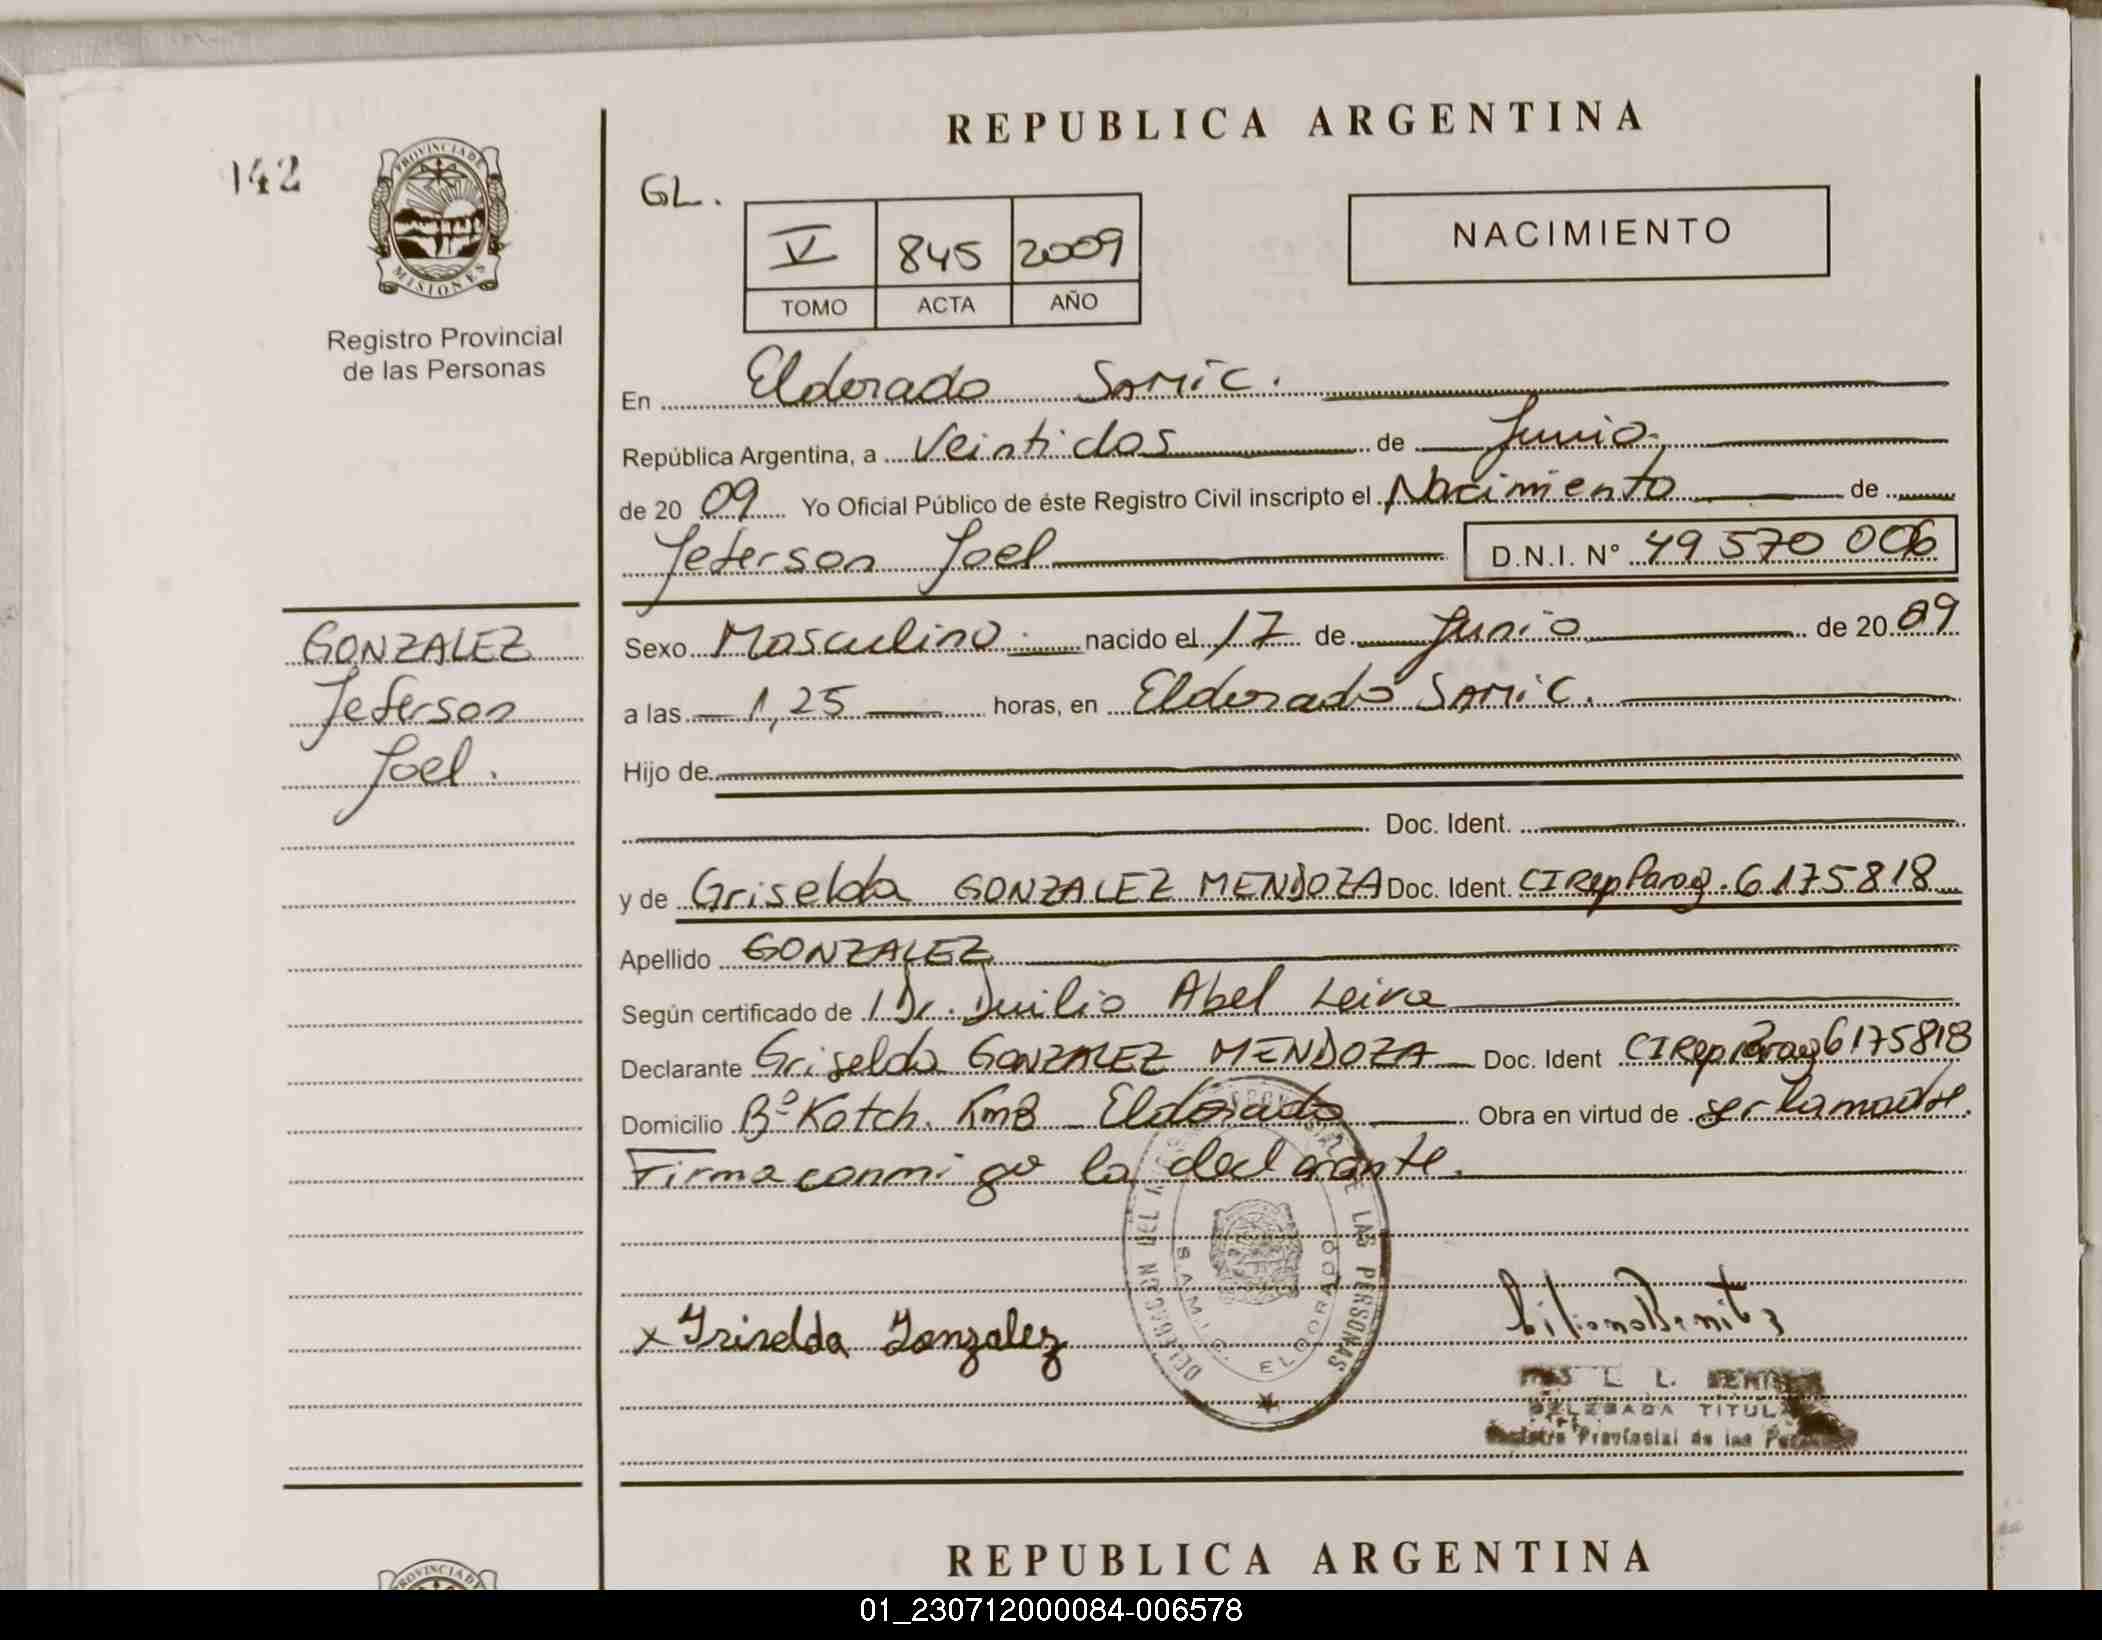 REPUBLICA ARGENTINA
142
PROVINCIA DE
MISIONES
Registro Provincial
de las Personas
GL.
V 845 2009
TOMO ACTA AÑO
NACIMIENTO
En Eldorado SAMIC.
República Argentina, a Veintidos de Junio
de 2009 Yo Oficial Público de éste Registro Civil inscripto el Nacimiento de
Jeferson Joel D.N.I. N° 49 570 006
GONZALEZ
Jeferson
Joel.
Sexo Masculino. nacido el 17 de Junio de 2009
a las 1,25 horas, en Eldorado SAMIC.
Hijo de
Doc. Ident.
y de Griselda GONZALEZ MENDOZA Doc. Ident. CI Rep Parag. 6175818
Apellido GONZALEZ
Según certificado de Dr. Duilio Abel Leiva
Declarante Griselda GONZALEZ MENDOZA Doc. Ident CI Rep Parag 6175818
Domicilio B° Kotch. Km8 Eldorado Obra en virtud de ser la madre.
Firma conmigo la declarante.
x Griselda Gonzalez
DELEGACION DEL LAS PERSONAS
S.A.M.I.C. ELDORADO
Liliana Benitez
L. L.
DELEGADA TITULAR
Registro Provincial de las
REPUBLICA ARGENTINA
PROVINCIA DE
01_230712000084-006578